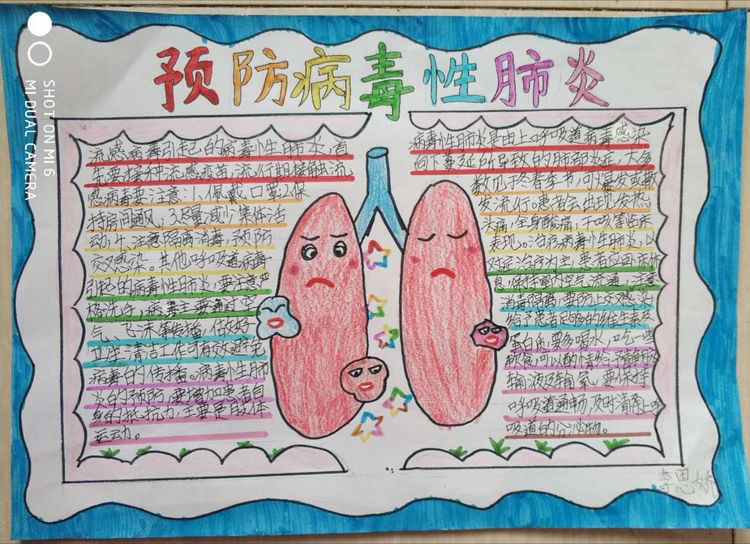 预防病毒性肺炎
流感病毒引起的病毒性肺炎,首
先要接种流感疫苗,流行期接触流
感病毒要注意:1.佩戴口罩2.保
持房间通风;3.尽量减少集体活
动;4.注意隔离消毒,预防
交叉感染。其他呼吸道病毒
引起的病毒性肺炎,要注意严
格洗手,病毒主要通过空
气、飞沫等传播,做好
卫生清洁工作可有效避免
病毒的传播。病毒性肺
炎的预防,要增加患者自
身的抵抗力,主要是肢体
运动。
病毒性肺炎是由上呼吸道病毒感染
向下蔓延所导致的肺部炎症,大多
数见于冬春季节,可爆发或散
发流行,患者会出现发热,
头痛,全身酸痛,干咳等临床
表现。治疗病毒性肺炎,以
对症治疗为主,患者应卧床休
息,保持室内空气流通,注意
消毒隔离,要防止交叉感染
给予患者足够的维生素及
蛋白质,要多喝水,吃一些
软食,可以酌情给予静脉
输液及输氧,要保持
呼吸道通畅,及时清除上呼
吸道的分泌物。
李思
SHOT ON MI 6
MI DUAL CAMERA